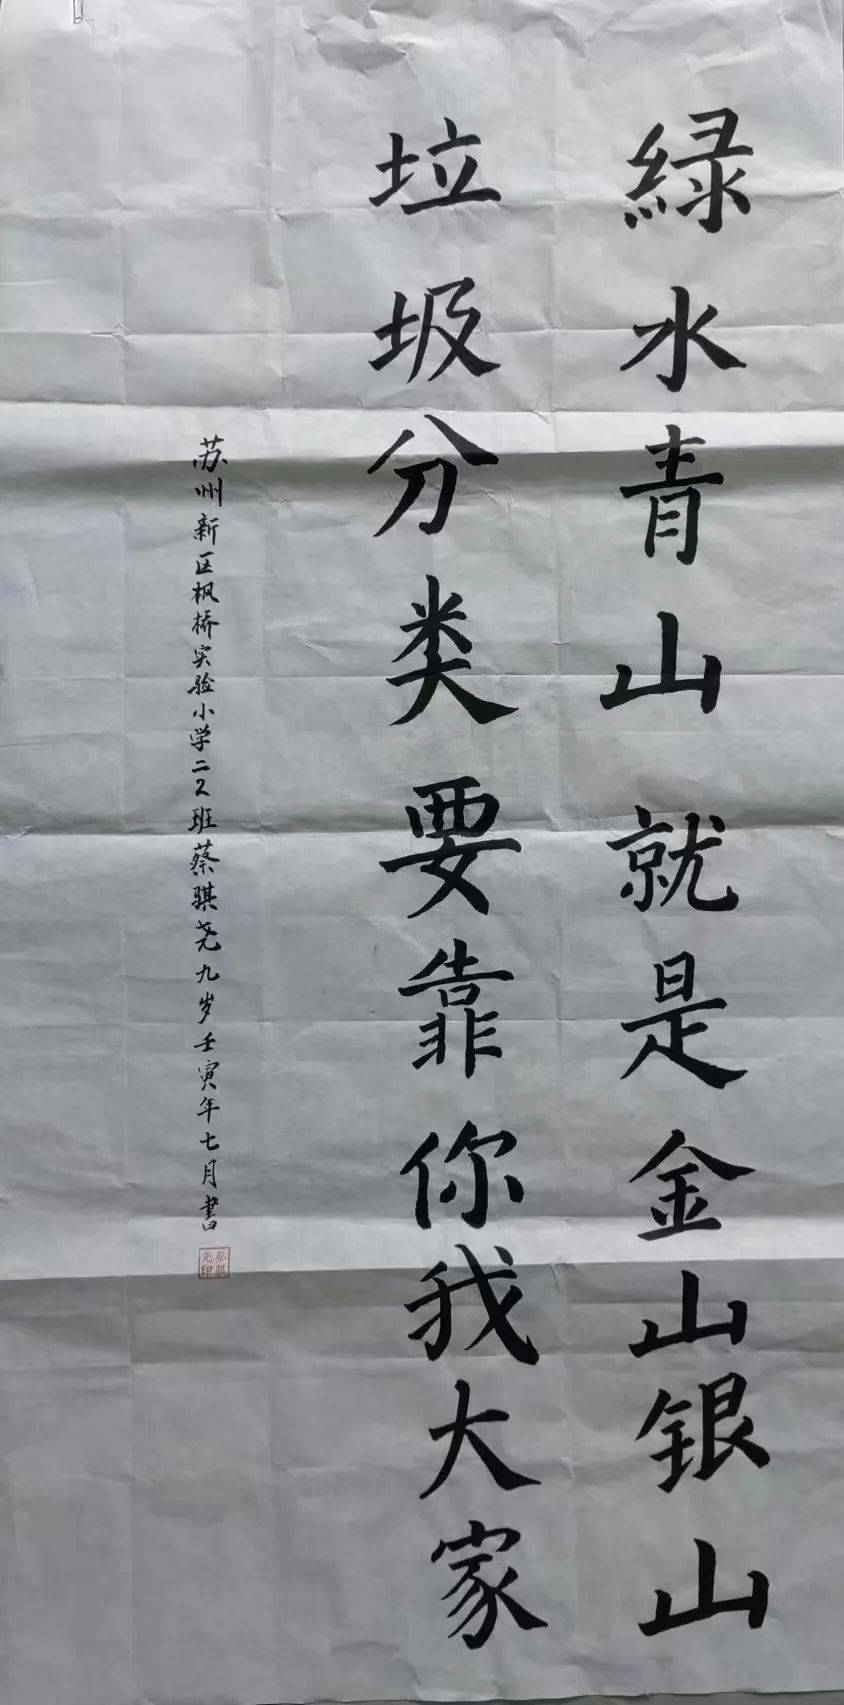 緑水青山就是金山银山
垃圾分类要靠你我大家
苏州新区枫桥实验小学二2班蔡骐尧九岁壬寅年七月書
蔡骐尧印